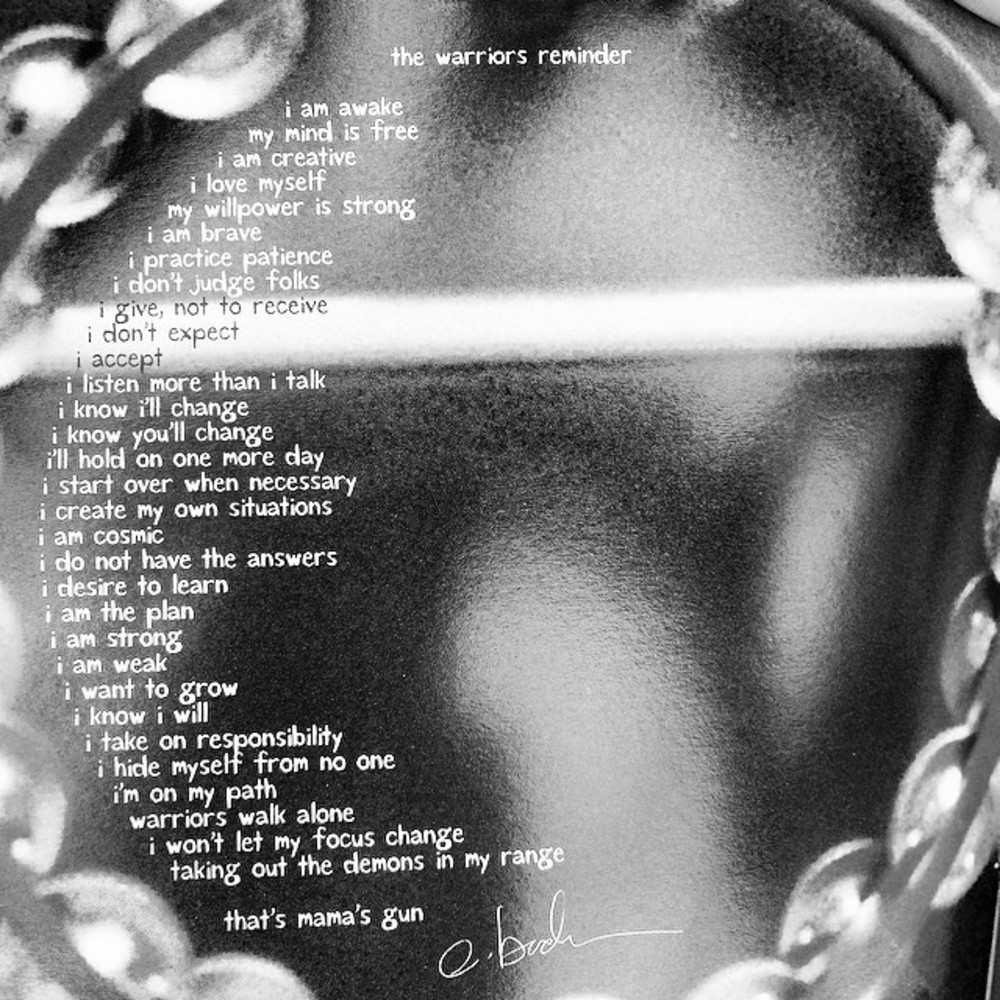 the warriors reminder
i am awake
my mind is free
i am creative
i love myself
my willpower is strong
i am brave
i practice patience
i don't judge folks
i give, not to receive
i don't expect
i accept
i listen more than i talk
i know i'll change
i know you'll change
i'll hold on one more day
i start over when necessary
i create my own situations
i am cosmic
i do not have the answers
i desire to learn
i am the plan
i am strong
i am weak
i want to grow
i know i will
i take on responsibility
i hide myself from no one
i'm on my path
warriors walk alone
i won't let my focus change
taking out the demons in my range
that's mama's gun
e. badu